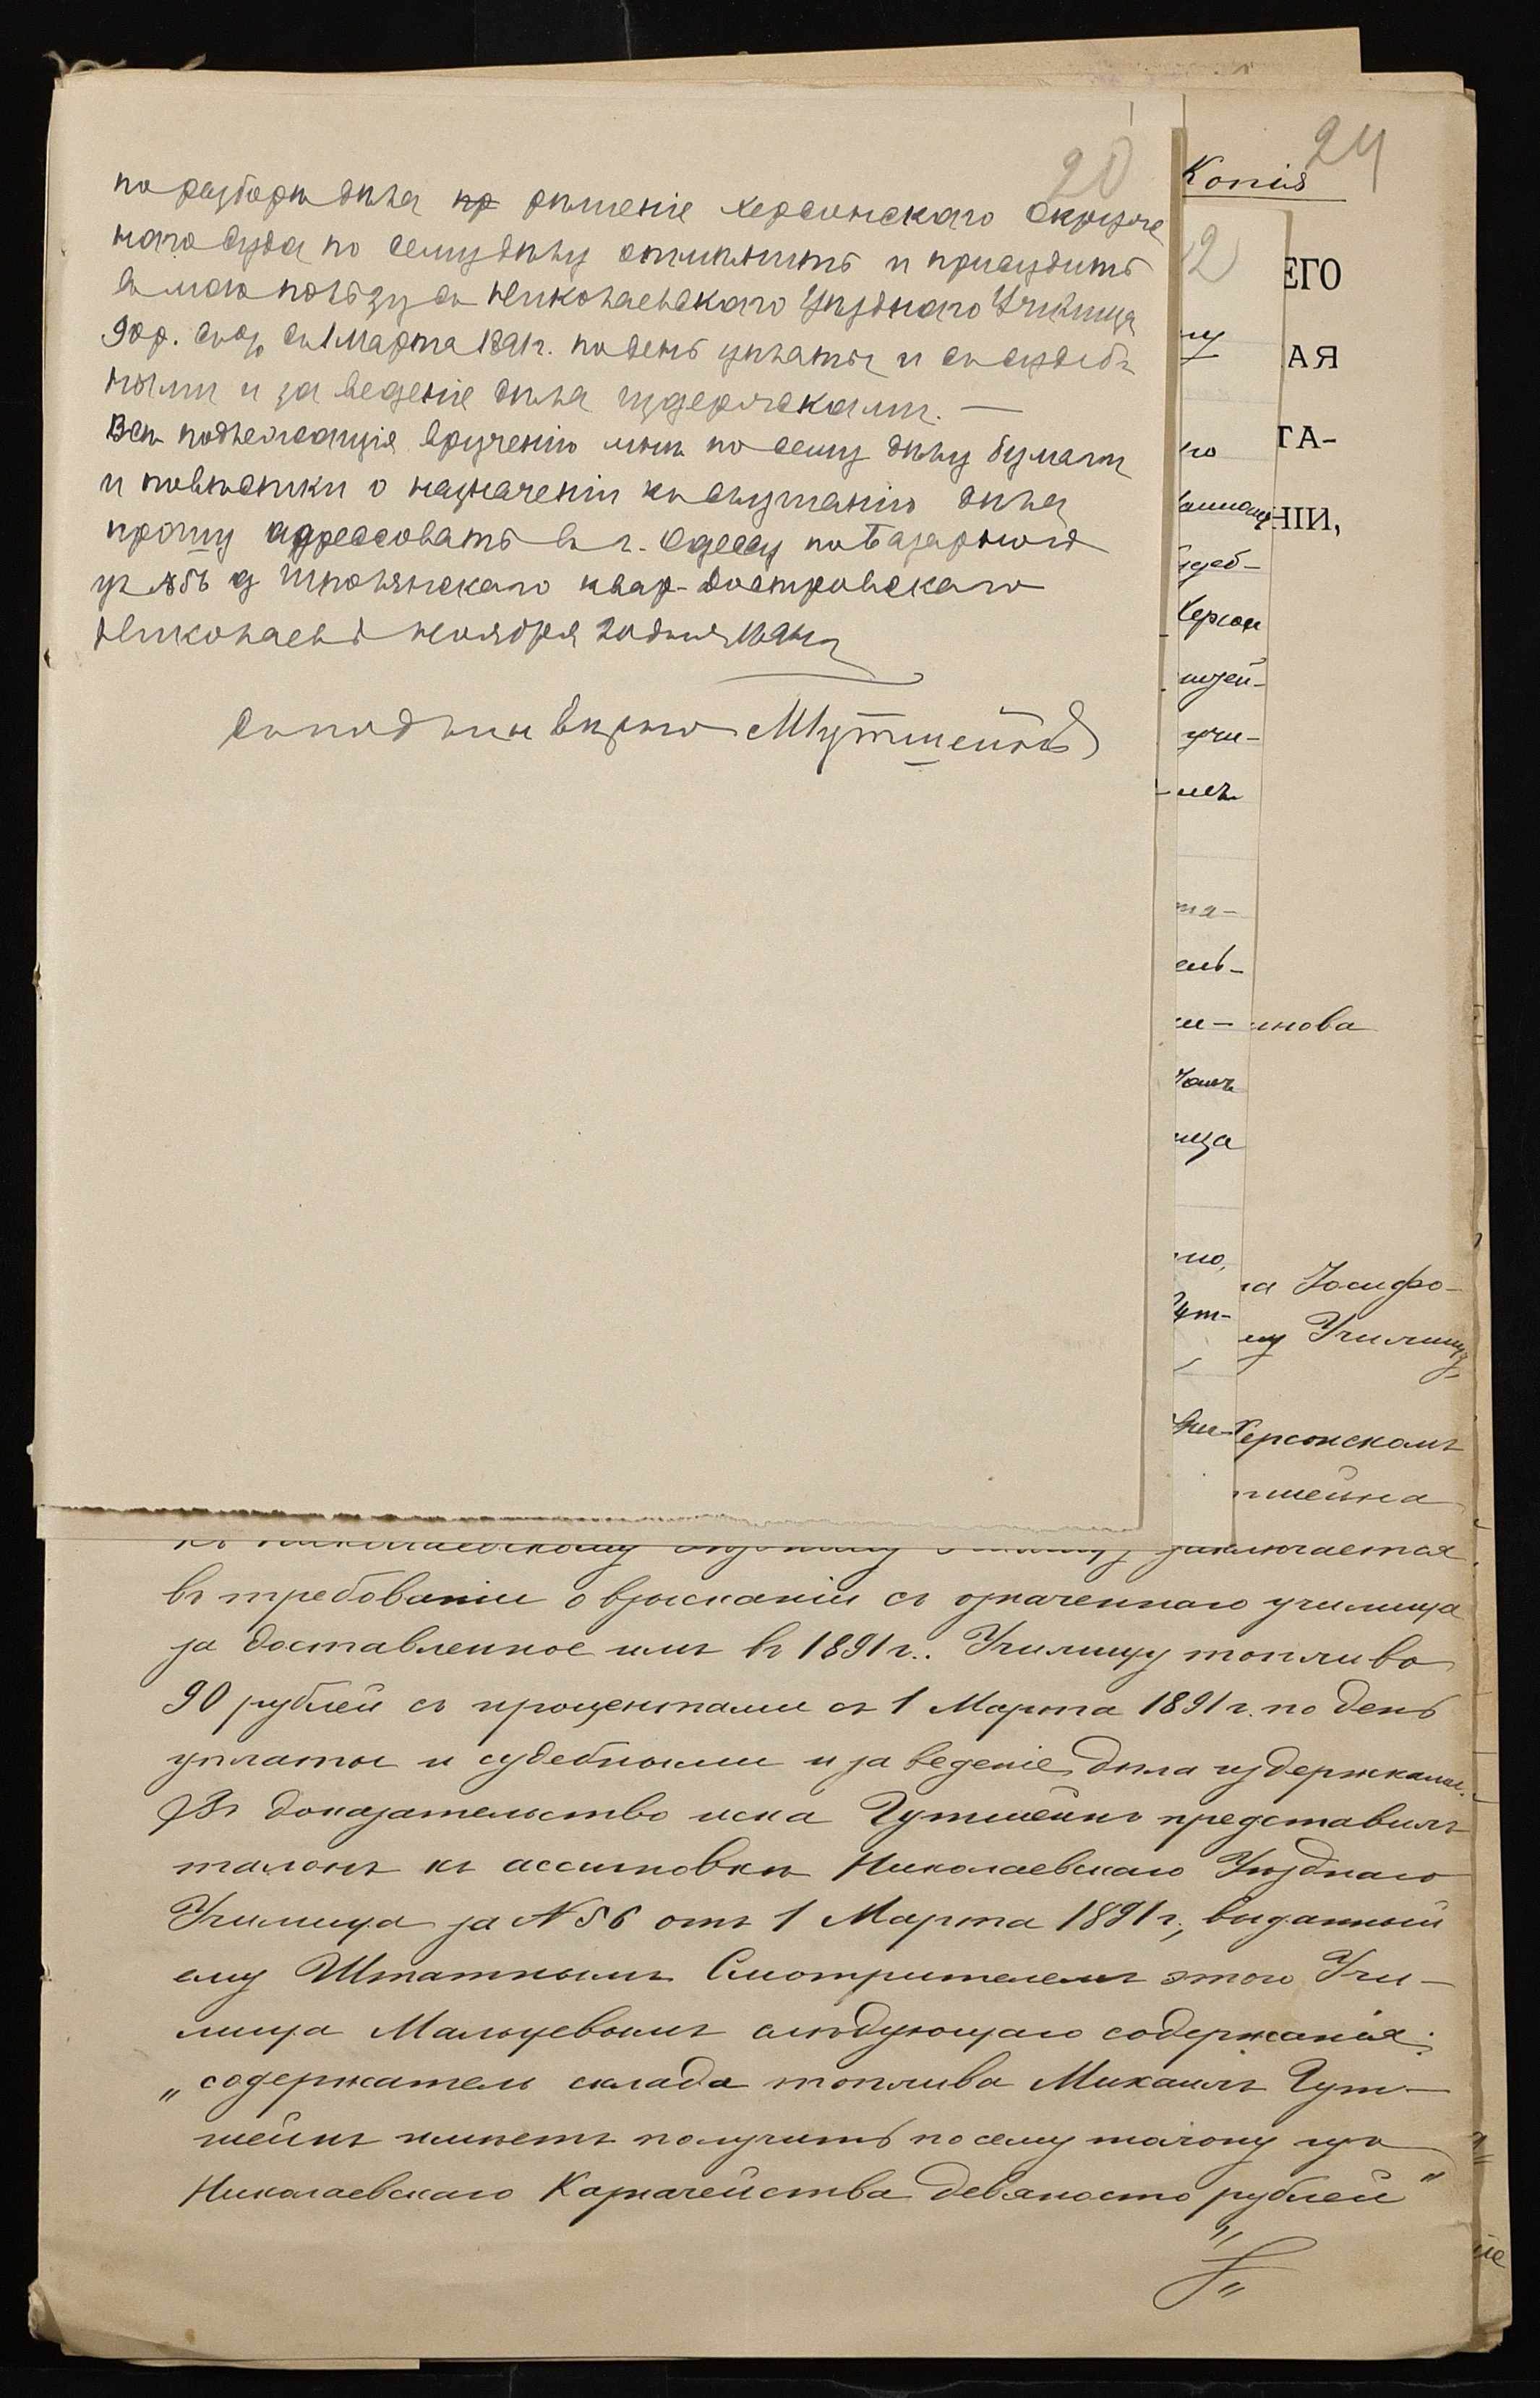 20
по разборѣ дѣла пр рѣшеніе Херсонскаго Окруж
наго Суда по сему дѣлу отмѣнить и присудить
въ мою пользу съ Николаевскаго Уѣзднаго Училища
90р. съ % съ 1 Марта 1891г. по день уплаты и съ судеб
ными и за веденіе дѣла издержками. —
Всѣ подлежащія врученію мнѣ по сему дѣлу бумаги
и повѣстки о назначеніи къ слушанію дѣла
прошу адресовать въ г. Одессу по Базарной
ул д Шполянскаго квар-
Николаевъ Ноября 20 дня
Съ подлин вѣрно МГутшейнъ
24
Копія
2
ЕГО
АЯ
ТА-
НІИ,
судеб-
Херсон
учи-
нова
ца
но,
Гут-
на Іосифо-
му Училищу
Херсонскомъ
тшейна
къ Николаевскому Уѣздному Училищу, заключается
въ требованіи о взысканіи съ означеннаго училища
за доставленное имъ въ 1891 г.. Училищу топливо
90 рублей съ процентами съ 1 Марта 1891 г. по день
уплаты и судебными и за веденіе дѣла издержками.
Въ доказательство иска Гутшейнъ представилъ
талонъ къ ассигновкѣ Николаевскаго Уѣзднаго
Училища за N 56 отъ 1 Марта 1891 г., выданный
ему Штатнымъ Смотрителемъ этого Учи-
лища Мальцевымъ слѣдующаго содержанія:
„содержатель склада топлива Михаилъ Гут-
шейнъ имѣетъ получить по сему талону изъ
Николаевскаго Казначейства девяносто рублей"